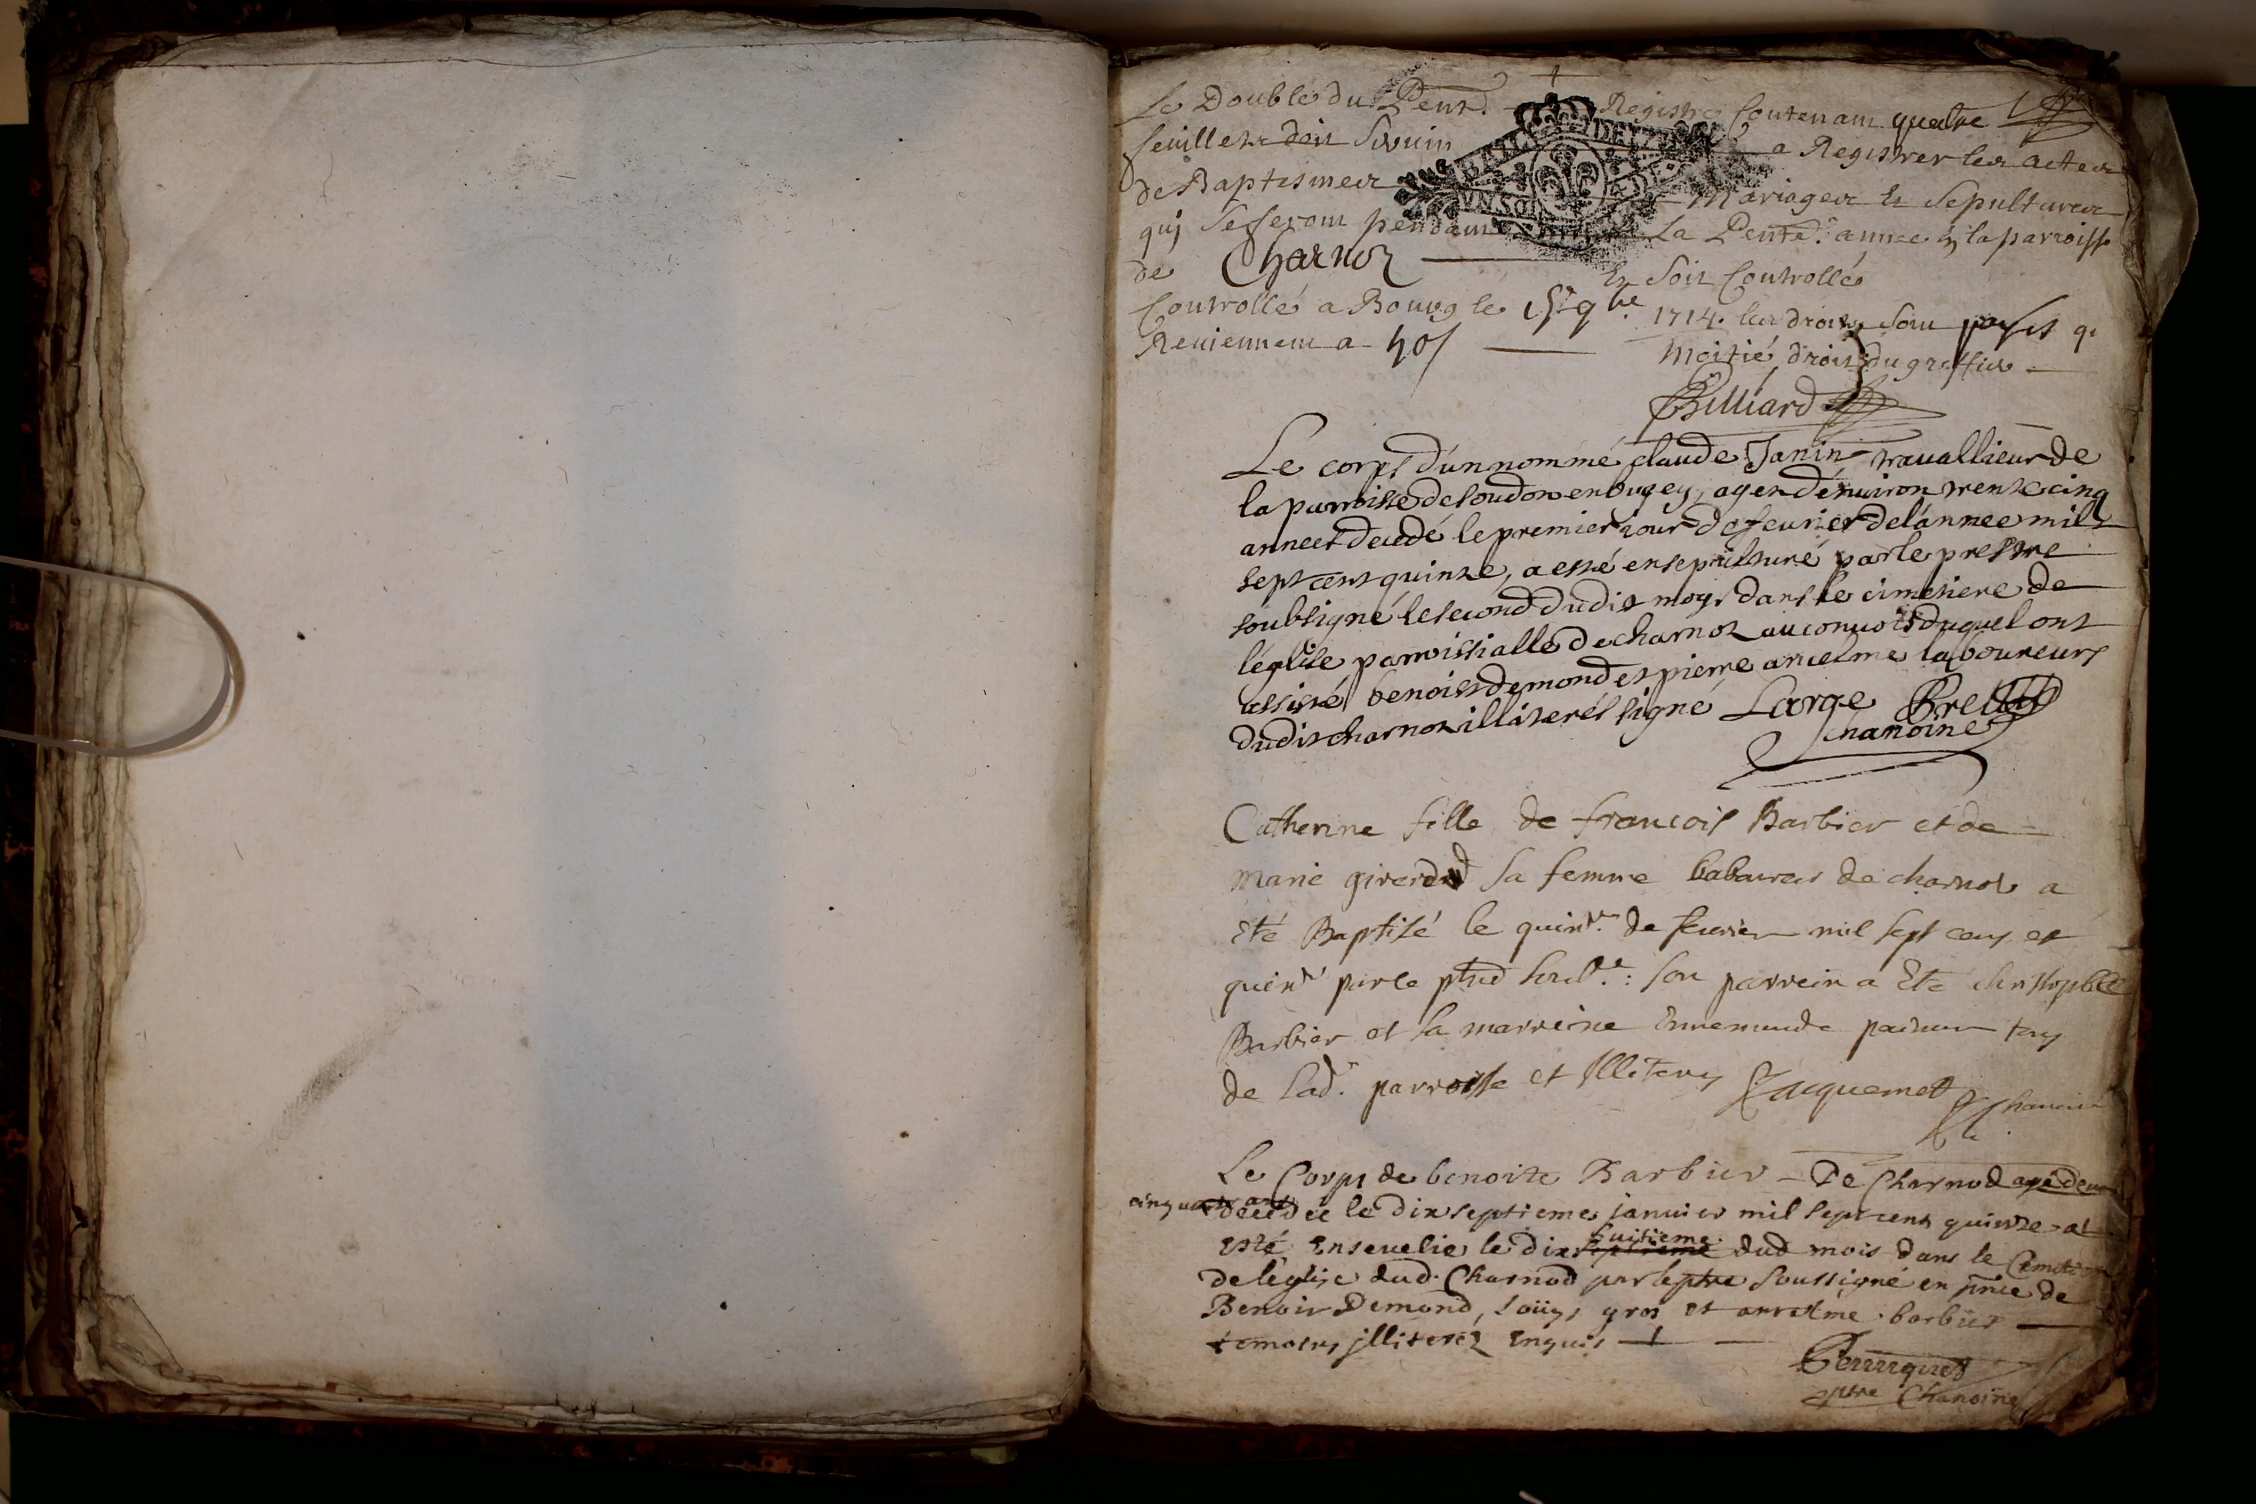 Le Double du Pent. Registre Contenant quatre
feuillets doit Servir a Registrer les actes
de Baptesmes Mariages Et Sepultures
GENERALITE DE
UN SOL
quj Se feront pendant La Pente. annee en la parroisse
de Charnoz Et Soit Controllé
Controllé a Bourg le 1714. les droits Sont payes qi
Reviennent a moitié droit du greffier
Billiard
Le corps d'un nommé claude Janin travallieur de
la parroisse de loudon en bugey, agez d'environ trente cinq
annees decedé le premier iour de feurier de l'annee mil
sept cent quinze, a esté ensepulturé par le prestre
soubsigné le second dudit moys dans le cimetiere de
léglise parroissialle de charnoz au conuois duquel ont
assisté benoist demond et pierre ancelme laboureurs
dudit charnoz illiterés signé Large Pretre
chanoine
Catherine fille de francois Barbier et de
marie girerd sa femme de charnoz a
Eté Baptisé le quinze. de feurier mil sept cens et
quinze par le : son parrein a Eté christophle
Barbier et la marreine Ennemonde tous
de lad. parroisse et Illiterez Jacquemet chanoine
Le Corps de benoite Barbier De Charnod agé denv
cinquante ans
decedee le dix septieme januier mil sept cent quinze at
huitieme
esté Enseuelie le dix septieme dud mois dans le Cemetiere
de léglise dud. Charnod par le ptre soussigné en pnce de
Benoit Demond, loüys gros et anselme barbier
temoins jlliterez Enquis
Perruquet
ptre Chanoine